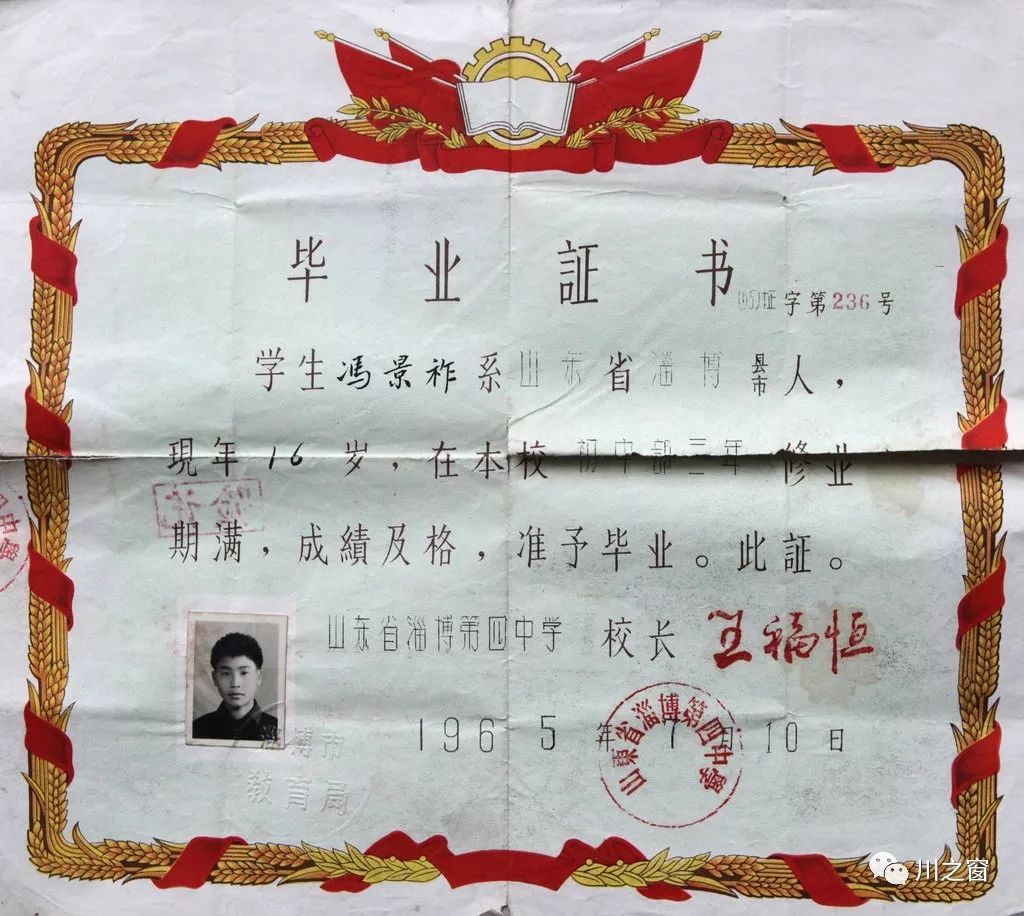 毕业証书
(65)証字第236号
学生馮景祚系山东省淄博县市人，
現年16岁，在本校初中部三年修业
期满，成績及格，准予毕业。此証。
山东省淄博第四中学 校长 王福恒
1965年7月10日
山東省淄博第四中學
淄博市
教育局
川之窗